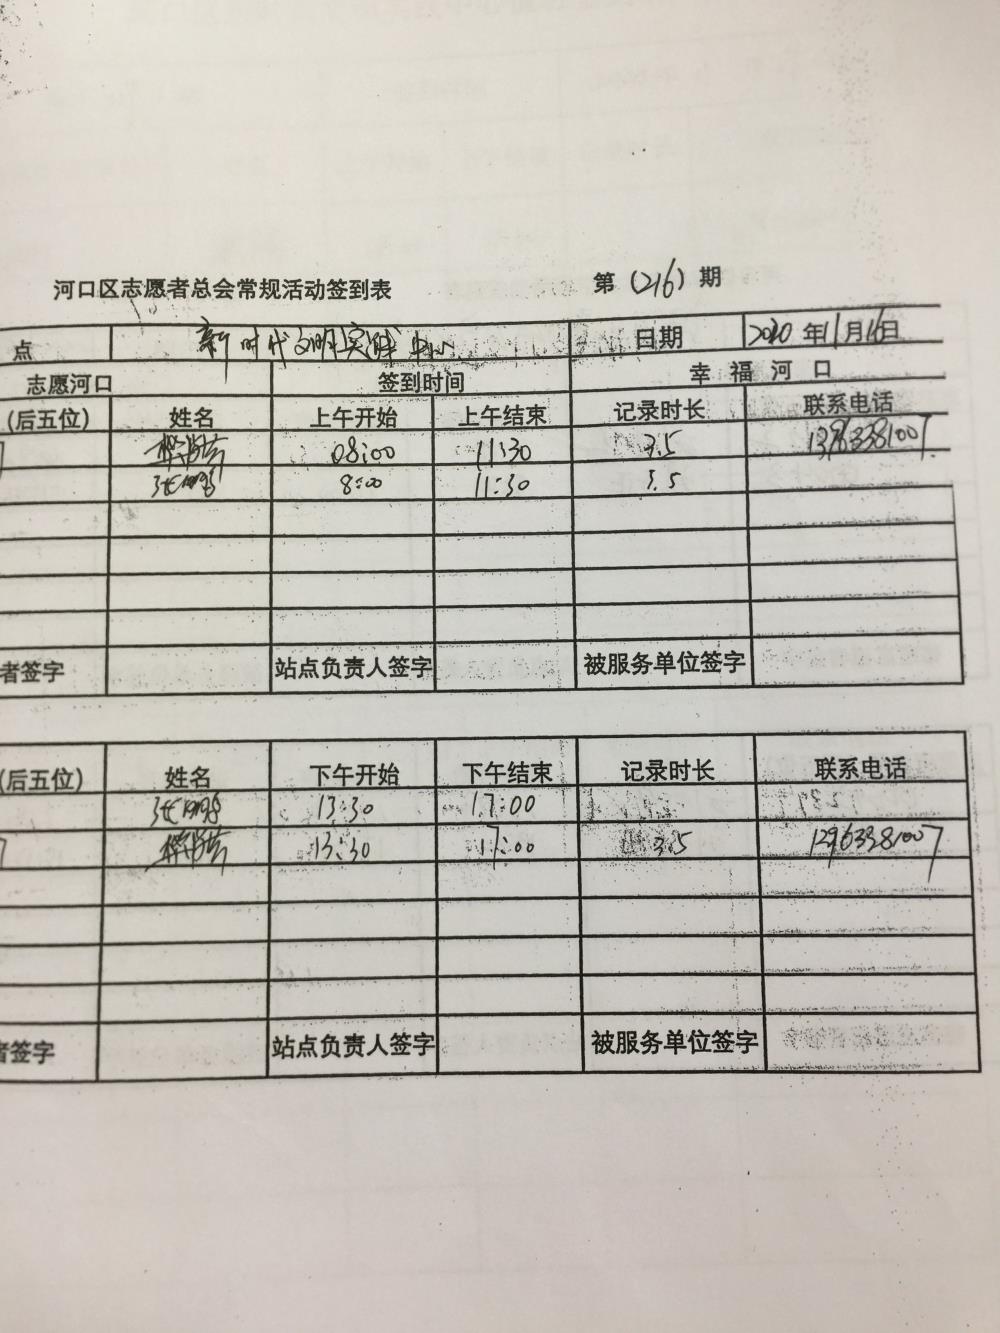 河口区志愿者总会常规活动签到表 第（216）期
点 新时代文明实践中心 日期 2020年11月16日
志愿河口 签到时间 幸福河口
(后五位) 姓名 上午开始 上午结束 记录时长 联系电话
08:00 11:30 3.5
8:00 11:30 3.5
者签字 站点负责人签字 被服务单位签字
(后五位) 姓名 下午开始 下午结束 记录时长 联系电话
13:30 17:00
13:30 17:00 3.5
者签字 站点负责人签字 被服务单位签字